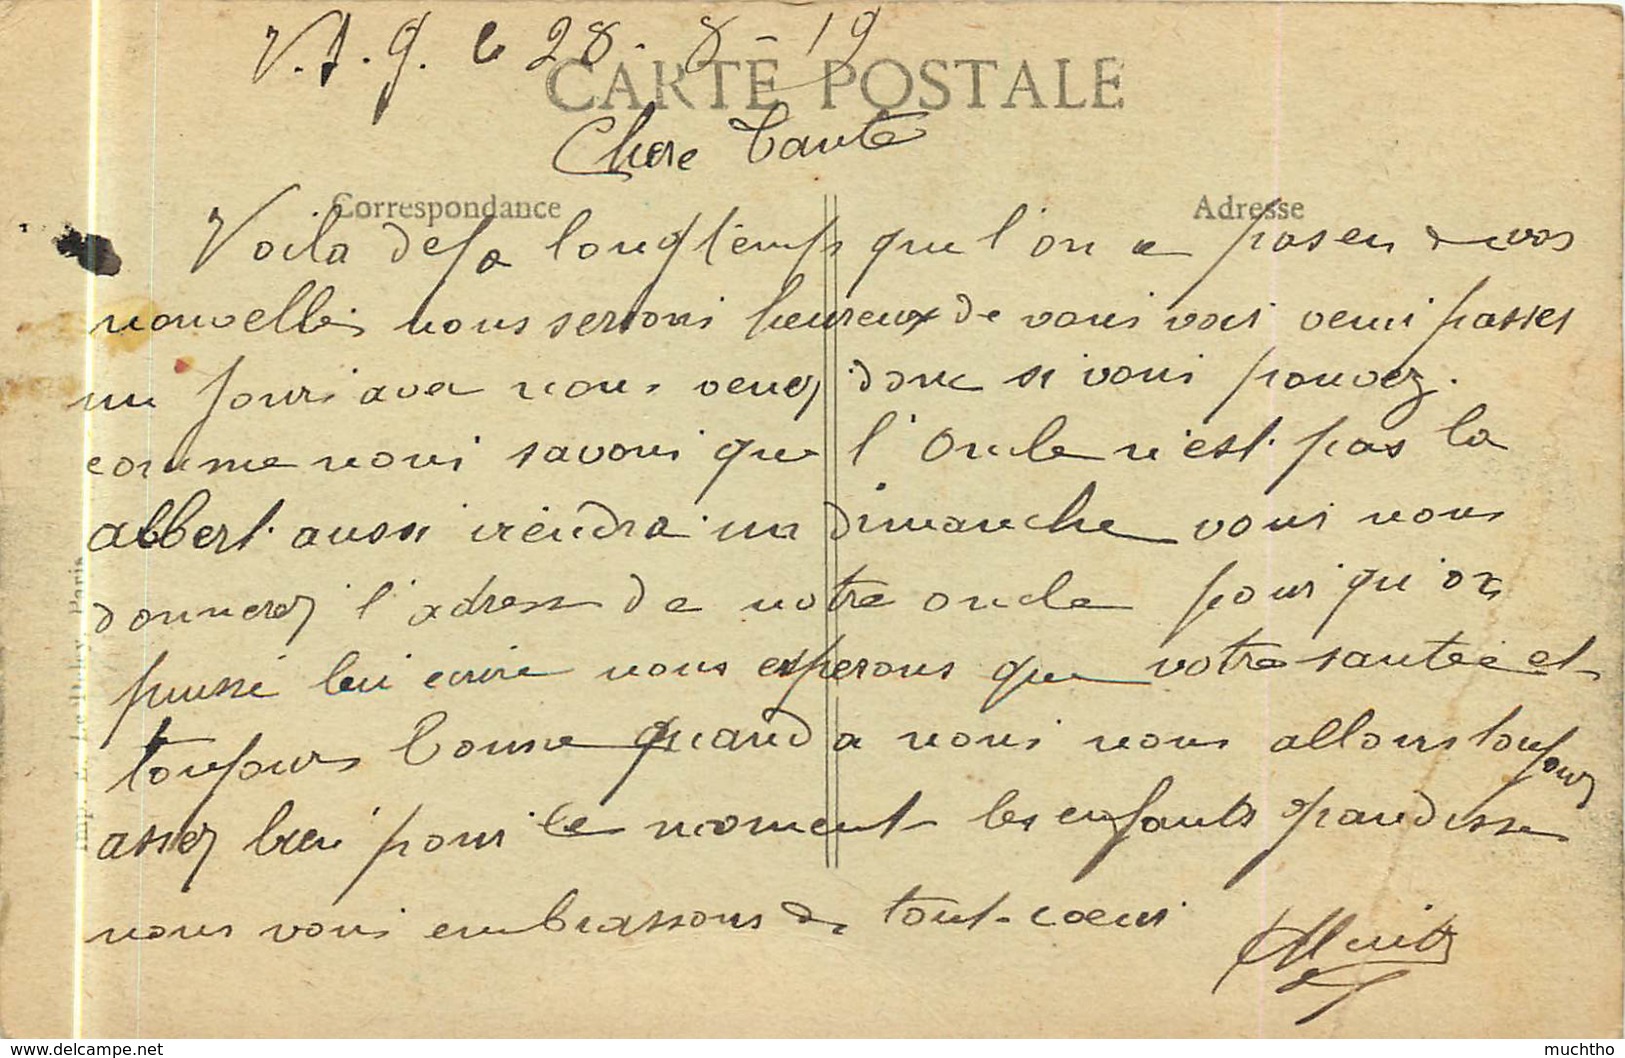 V. S. G. le 28-8-19
CARTE POSTALE
Chere Tante
Correspondance
Adresse
Voila deja longtemps que l'on a pas eu de vos
nouvelles nous serions heureux de vous voir venir passer
un jour avec nous venez donc si vous pouvez.
comme nous savons que l'Oncle n'est pas la
albert aussi viendra un dimanche vous nous
donnerez l'adresse de notre oncle pour qu'on
puisse lui ecrire nous esperons que votre santée est
toujours bonne quand a nous nous allons toujours
assez bien pour le moment les enfants grandisse
nous vous embrassons de tout-coeur
Imp. Paris
www.delcampe.net
muchtho